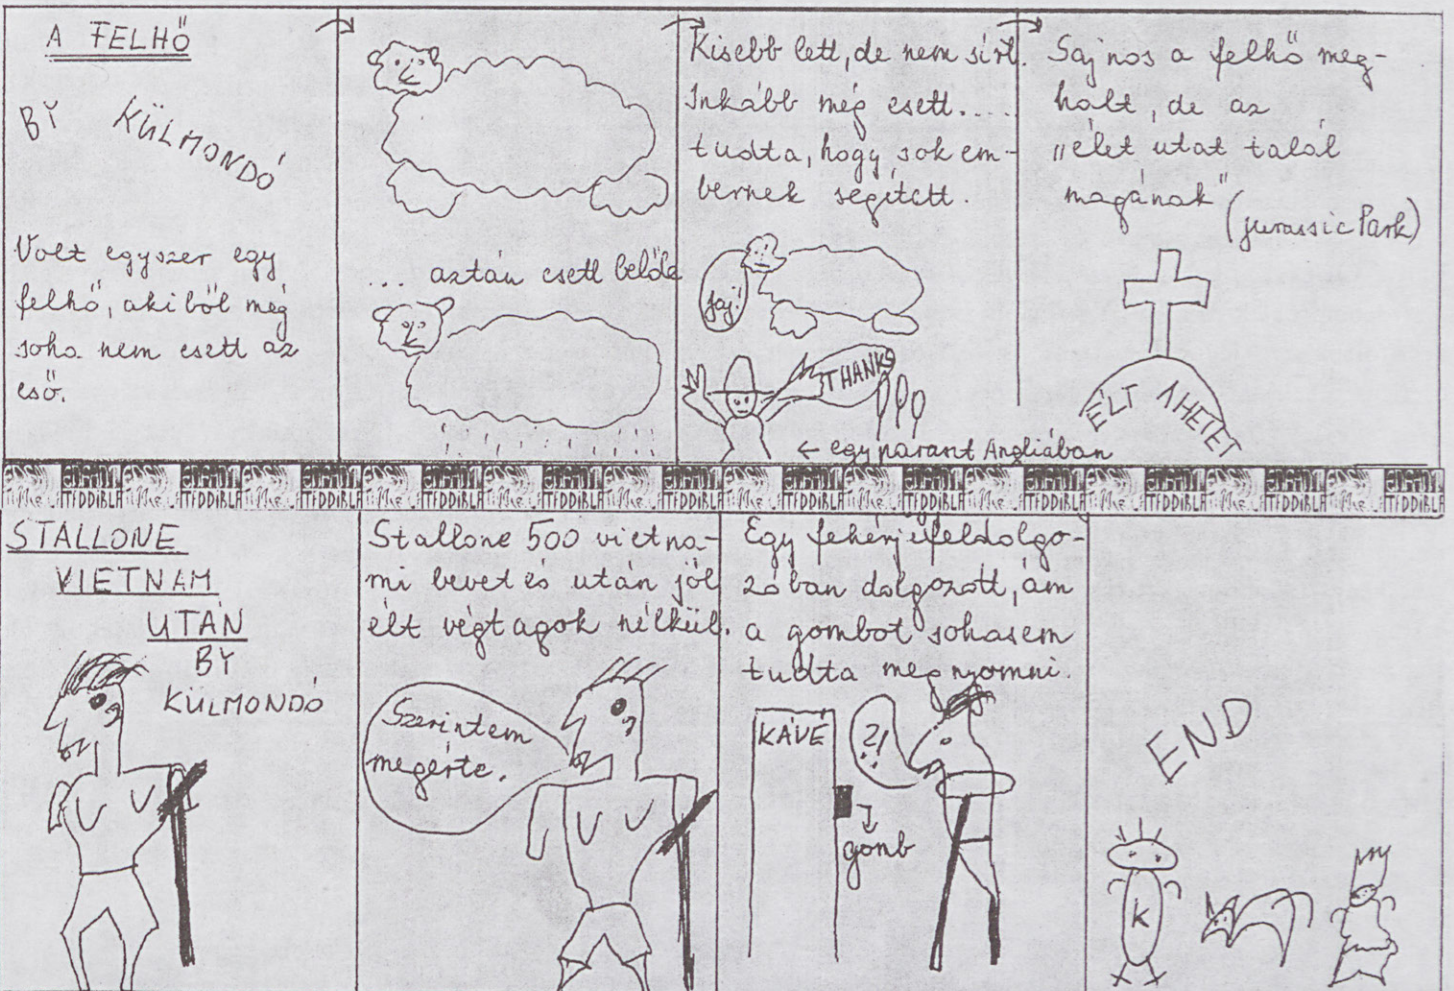 A FELHŐ
BY KÜLMONDÓ
Volt egyszer egy
felhő, akiből még
soha nem esett az
eső.
... aztán esett belőle
Kisebb lett, de nem sírt.
Inkább még esett....
tudta, hogy sok em-
bernek segített.
Jaj!
THANKS
← egy paraszt Angliában
Sajnos a felhő meg-
halt, de az
„élet utat talál
magának"
(Jurassic Park)
ÉLT 1 HETET
STALLONE
VIETNAM
UTÁN
BY
KÜLMONDÓ
Stallone 500 vietna-
mi bevetés után jól
élt végtagok nélkül.
Szerintem
megérte.
Egy fehérjefeldolgo-
zóban dolgozott, ám
a gombot sohasem
tudta megnyomni.
KÁVÉ
?!
gomb
END
K